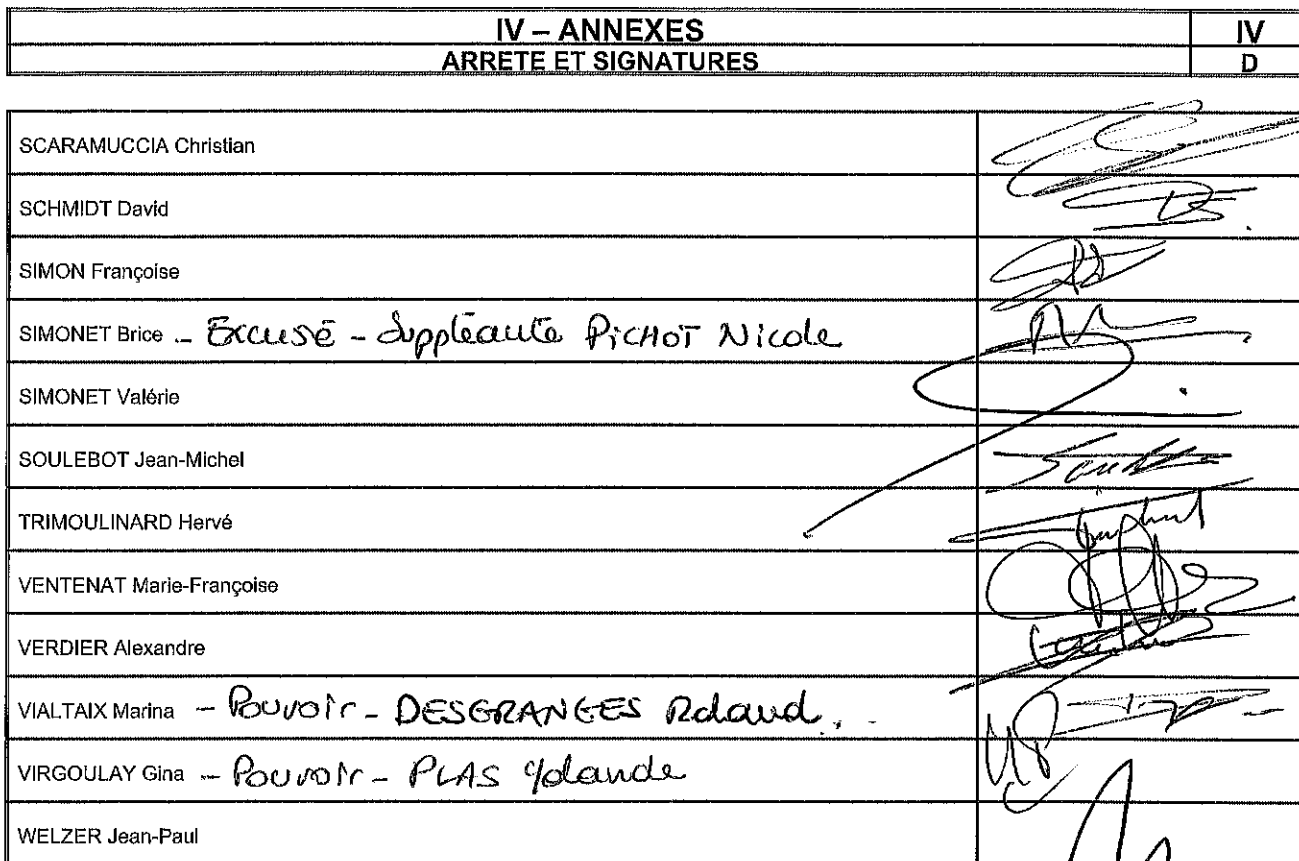 IV – ANNEXES IV
ARRETE ET SIGNATURES D
SCARAMUCCIA Christian
SCHMIDT David
SIMON Françoise
SIMONET Brice - Excusé - Suppléante PICHOT Nicole
SIMONET Valérie
SOULEBOT Jean-Michel
TRIMOULINARD Hervé
VENTENAT Marie-Françoise
VERDIER Alexandre
VIALTAIX Marina - Pouvoir - DESGRANGES Roland
VIRGOULAY Gina - Pouvoir - PLAS Yolande
WELZER Jean-Paul